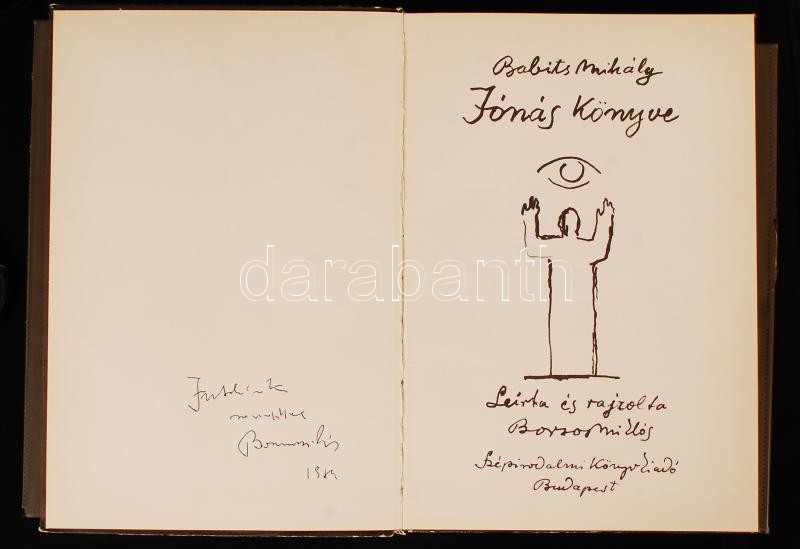 Babits Mihály
Jónás Könyve
darabanth
Leírta és rajzolta
Borsos Miklós
Szépirodalmi Könyvkiadó
Budapest
szeretettel
Borsos Miklós